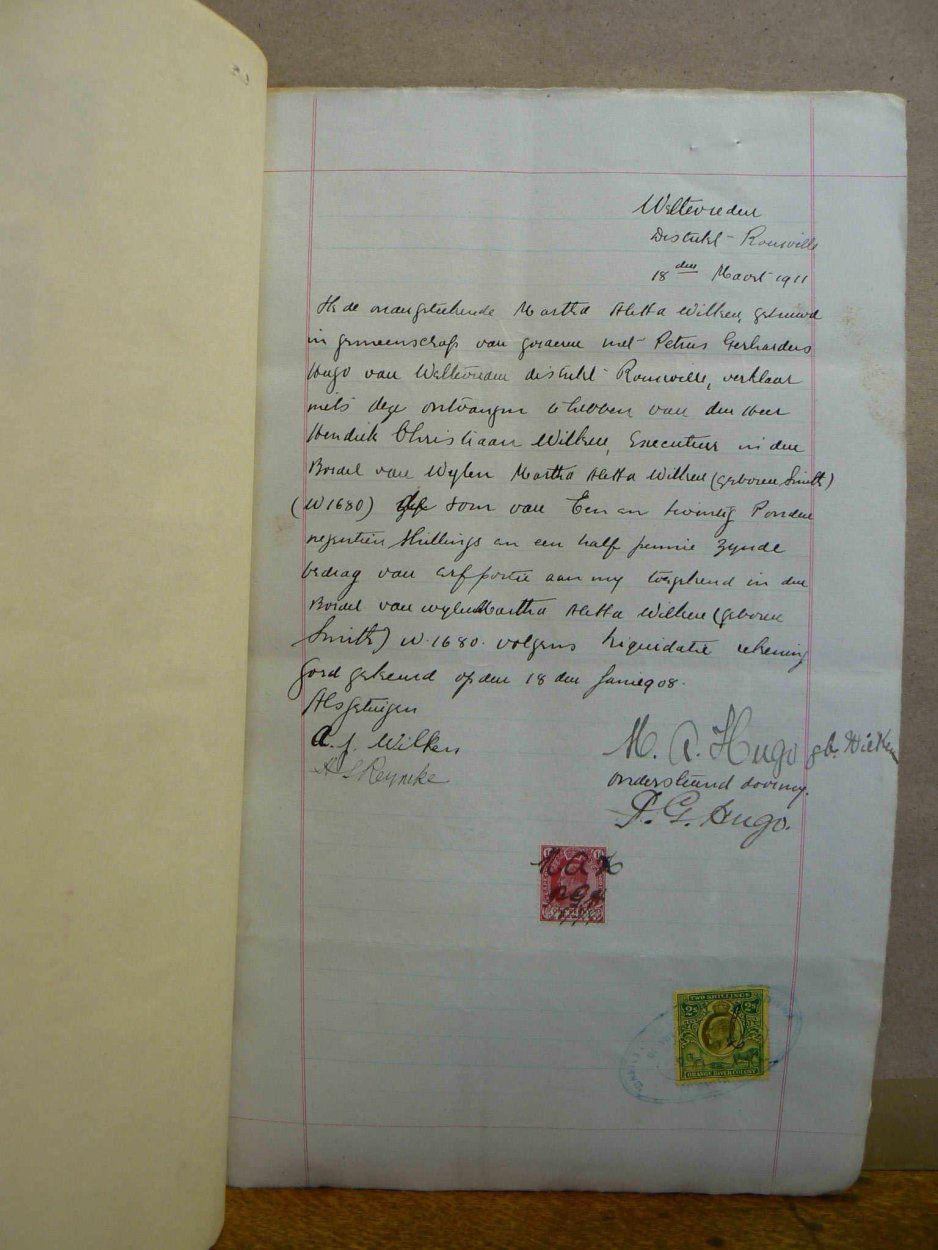 Weltevreden
Distrikt Rouxville
18 den Maart 1911
Ik de ondergetekende Martha Aletta Wilken, getrouwd
in gemeenschap van goederen met Petrus Gerhardus
Hugo van Weltevreden distrikt Rouxville, verklaar
mits deze ontvangen te hebben van den Heer
Hendrik Christiaan Wilken, Executeur in den
Boedel van Wylen Martha Aletta Wilken (geboren Smith)
(W1680) de som van Een en twintig Ponden
negentien Shillings en een half pennie zynde
bedrag van erfportie aan my toegekend in den
Boedel van wylen Martha Aletta Wilken (geboren
Smith) W.1680. volgens Liquidatie rekening
goed gekeurd op den 18 den Junie 908.
Als getuigen
A. J. Wilken
M. A. Hugo gb. Wilken
Reyneke
onderstaand door my.
P. G. Hugo.
M A H
P G H
TWO SHILLINGS
2s 2s
ORANGE RIVER COLONY